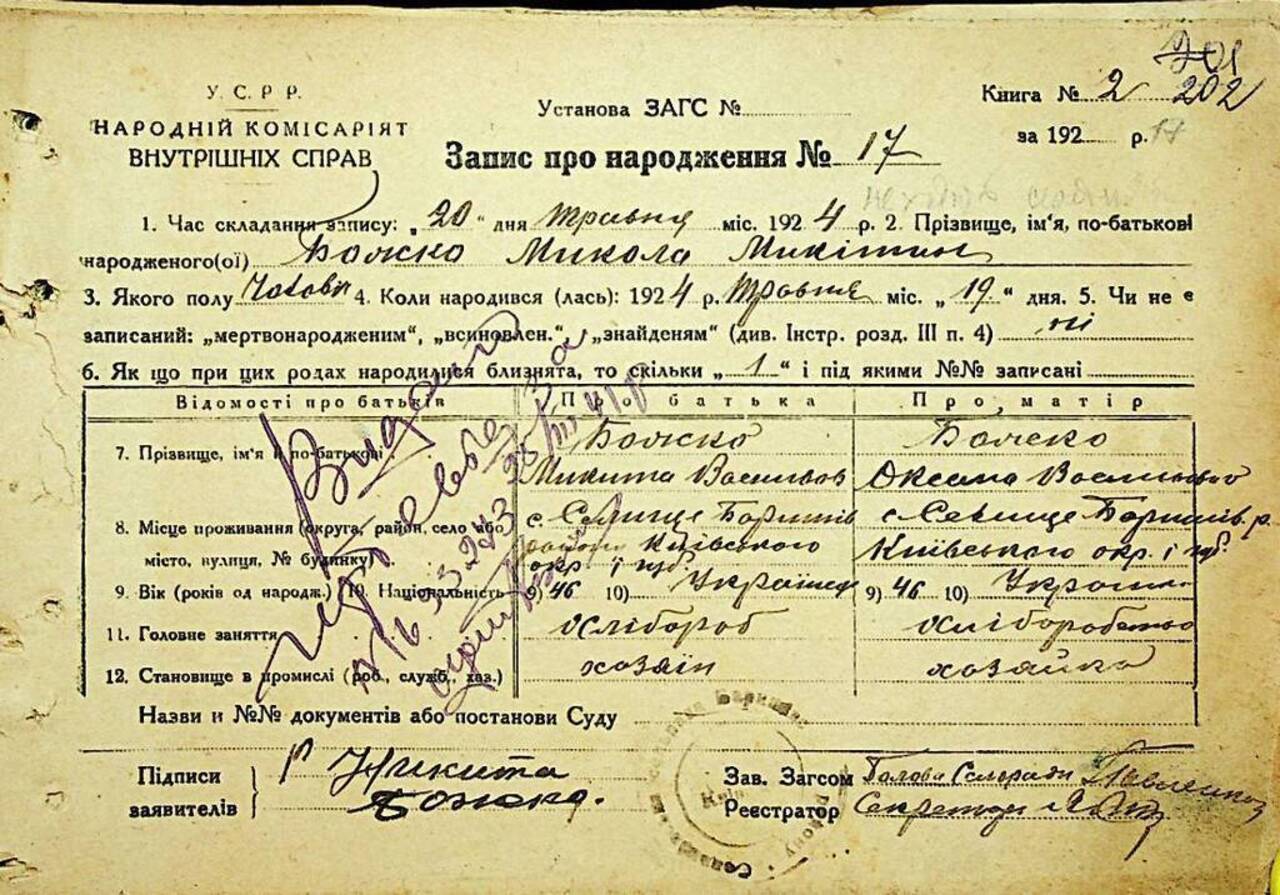 201
У. С. Р. Р.
НАРОДНІЙ КОМІСАРІЯТ
ВНУТРІШНІХ СПРАВ
Установа ЗАГС №
Книга № 2 202
за 192 р. 17
Запис про народження № 17
1. Час складання запису: „20“ дня Травня міс. 1924 р. 2. Прізвище, ім'я, по-батькові
народженого(ої) Божко Микола Микітин
3. Якого полу 4. Коли народився (лась): 1924 р. Травня міс. „19“ дня. 5. Чи не є
записаний: „мертвонародженим“, „всиновлен.“, „знайденям“ (див. Інстр. розд. III п. 4) ні
6. Як що при цих родах народилися близнята, то скільки „1“ і під якими №№ записані
Відомості про батьків Про батька Про матір
7. Прізвище, ім'я й по-батькові Божко Божко
Микита Васильов Оксана
8. Місце проживання (округа, район, село або с. Селище с. Селище
місто, вулиця, № будинку) району Київського Київського окр. і губ.
окр. і губ.
9. Вік (років од народж.) 10. Національність 9) 46 10) Українец 9) 46 10)
11. Головне заняття хлібороб хліборобство
12. Становище в промислі (роб., служб., хаз.) хозяїн хозяйка
Видано
Назви и №№ документів або постанови Суду
Підписи
заявителів
Никита
Божко.
Зав. Загсом Голова Сельради
Реєстратор Секретарь